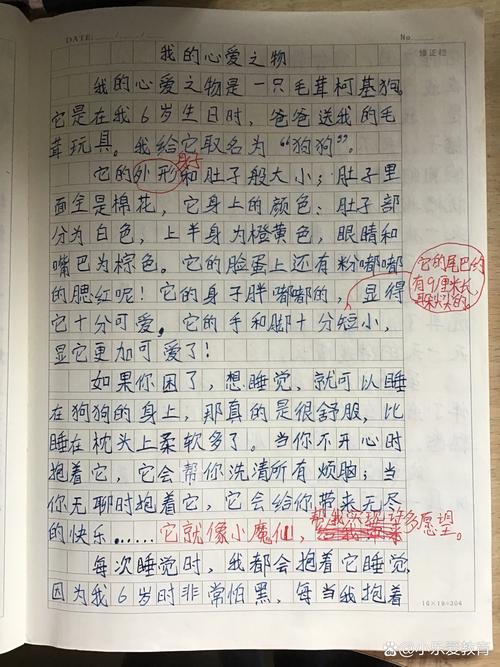 DATE:
No
修正栏
我的心爱之物
我的心爱之物是一只毛茸柯基狗。
它是在我6岁生日时，爸爸送我的毛
茸玩具。我给它取名为“狗狗”。
它的外形和肚子般大小；肚子里
面全是棉花，它身上的颜色：肚子部
分为白色，上半身为橙黄色，眼睛和
嘴巴为棕色。它的脸蛋上还有粉嘟嘟
的腮红呢！它的身子胖嘟嘟的，显得
它十分可爱。它的手和脚十分短小，
显它更加可爱了！
它的尾巴约
有9厘米长，
的。
如果你困了，想睡觉，就可以睡
在狗狗的身上，那真的是很舒服，比
睡在枕头上柔软多了。当你不开心时
抱着它，它会帮你洗清所有烦脑；当
你无聊时抱着它，它会给你带来无尽
的快乐……它就像小魔仙，帮我实现许多愿望。
每次睡觉时，我都会抱着它睡觉，
因为我6岁时非常怕黑，每当我抱着
16×19=304
@小乐爱教育